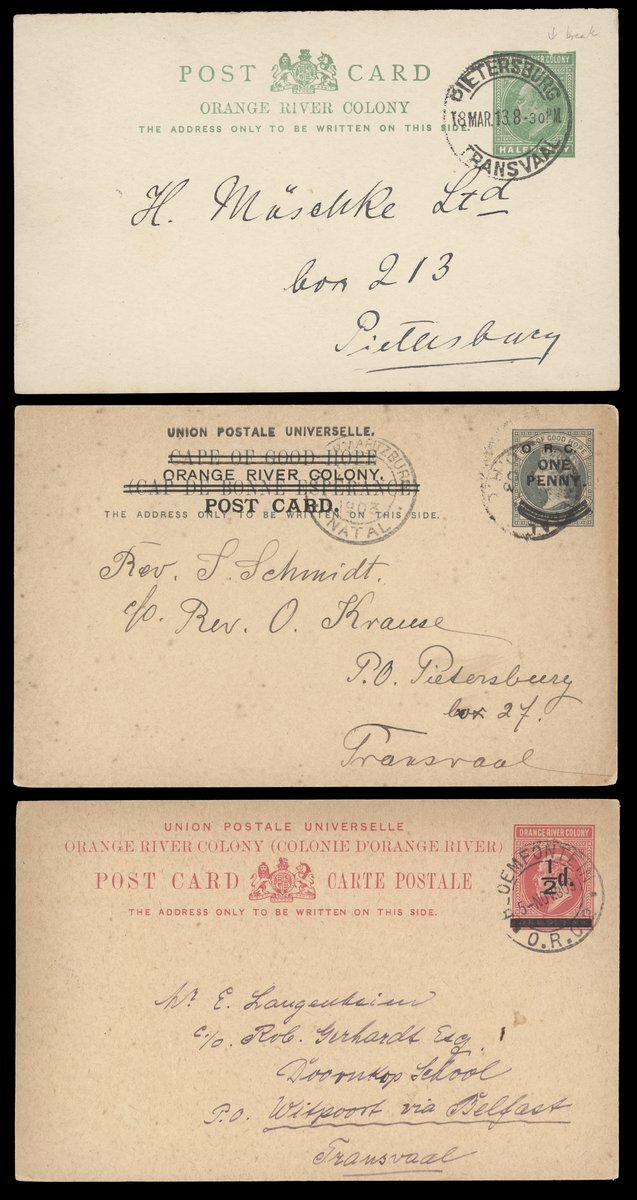 ↓ break
POST CARD
ORANGE RIVER COLONY
THE ADDRESS ONLY TO BE WRITTEN ON THIS SIDE.
RIVER COLONY
HALF
PIETERSBURG
18 MAR.13 8-30PM
TRANSVAAL
H. Mäschke Ltd
box 213
Pietersburg
UNION POSTALE UNIVERSELLE.
CAPE OF GOOD HOPE
ORANGE RIVER COLONY.
(CAP DE BONNE ESPERANCE)
POST CARD.
THE ADDRESS ONLY TO BE WRITTEN ON THIS SIDE.
MARITZBURG
1903
NATAL
OF GOOD HOPE
O. R. C.
ONE
PENNY
Rev. S. Schmidt.
c/o. Rev. O. Krause
P.O. Pietersburg
box 27.
Transvaal
UNION POSTALE UNIVERSELLE
ORANGE RIVER COLONY (COLONIE D'ORANGE RIVER)
POST CARD CARTE POSTALE
THE ADDRESS ONLY TO BE WRITTEN ON THIS SIDE.
ORANGE RIVER COLONY
1/2 d.
OEMFONTEIN
5-NO
O.R.C.
Mr E. Langenheim
c/o. Rob. Gerhardt Esq.
Doornkop School
P.O. Witpoort via Belfast
Transvaal